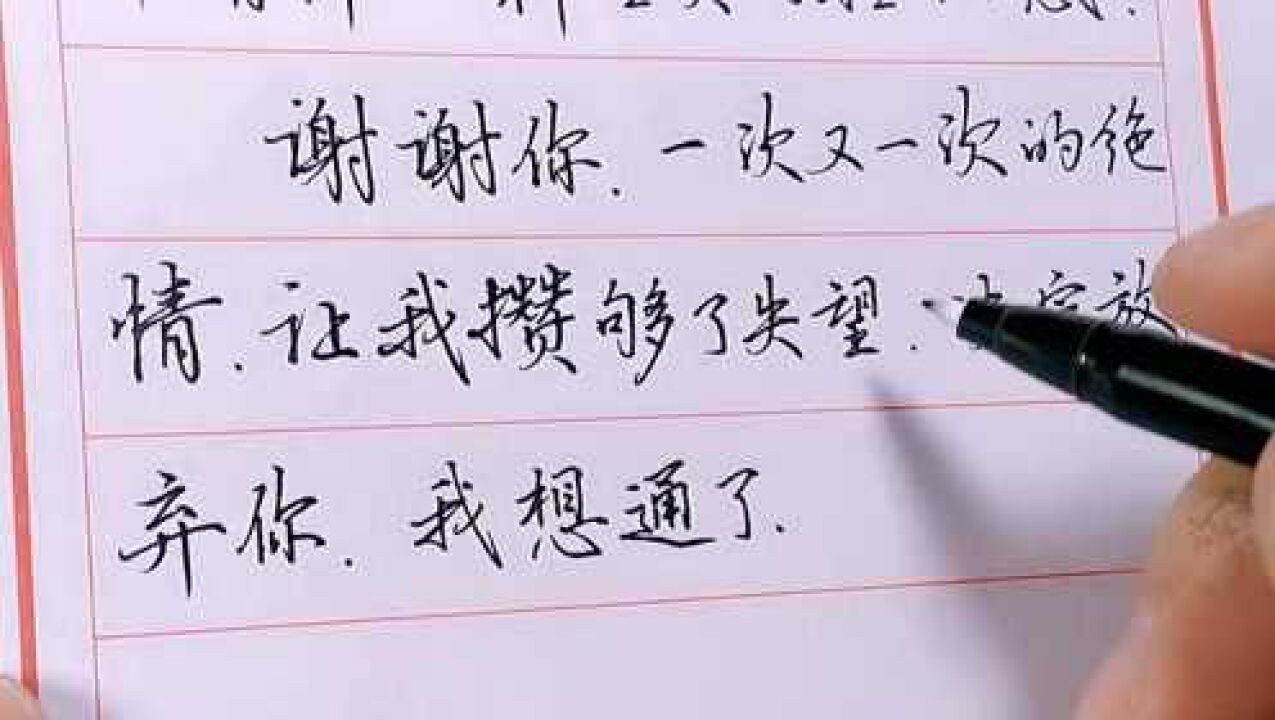 谢谢你.一次又一次的绝
情.让我攒够了失望.决定放
弃你.我想通了.